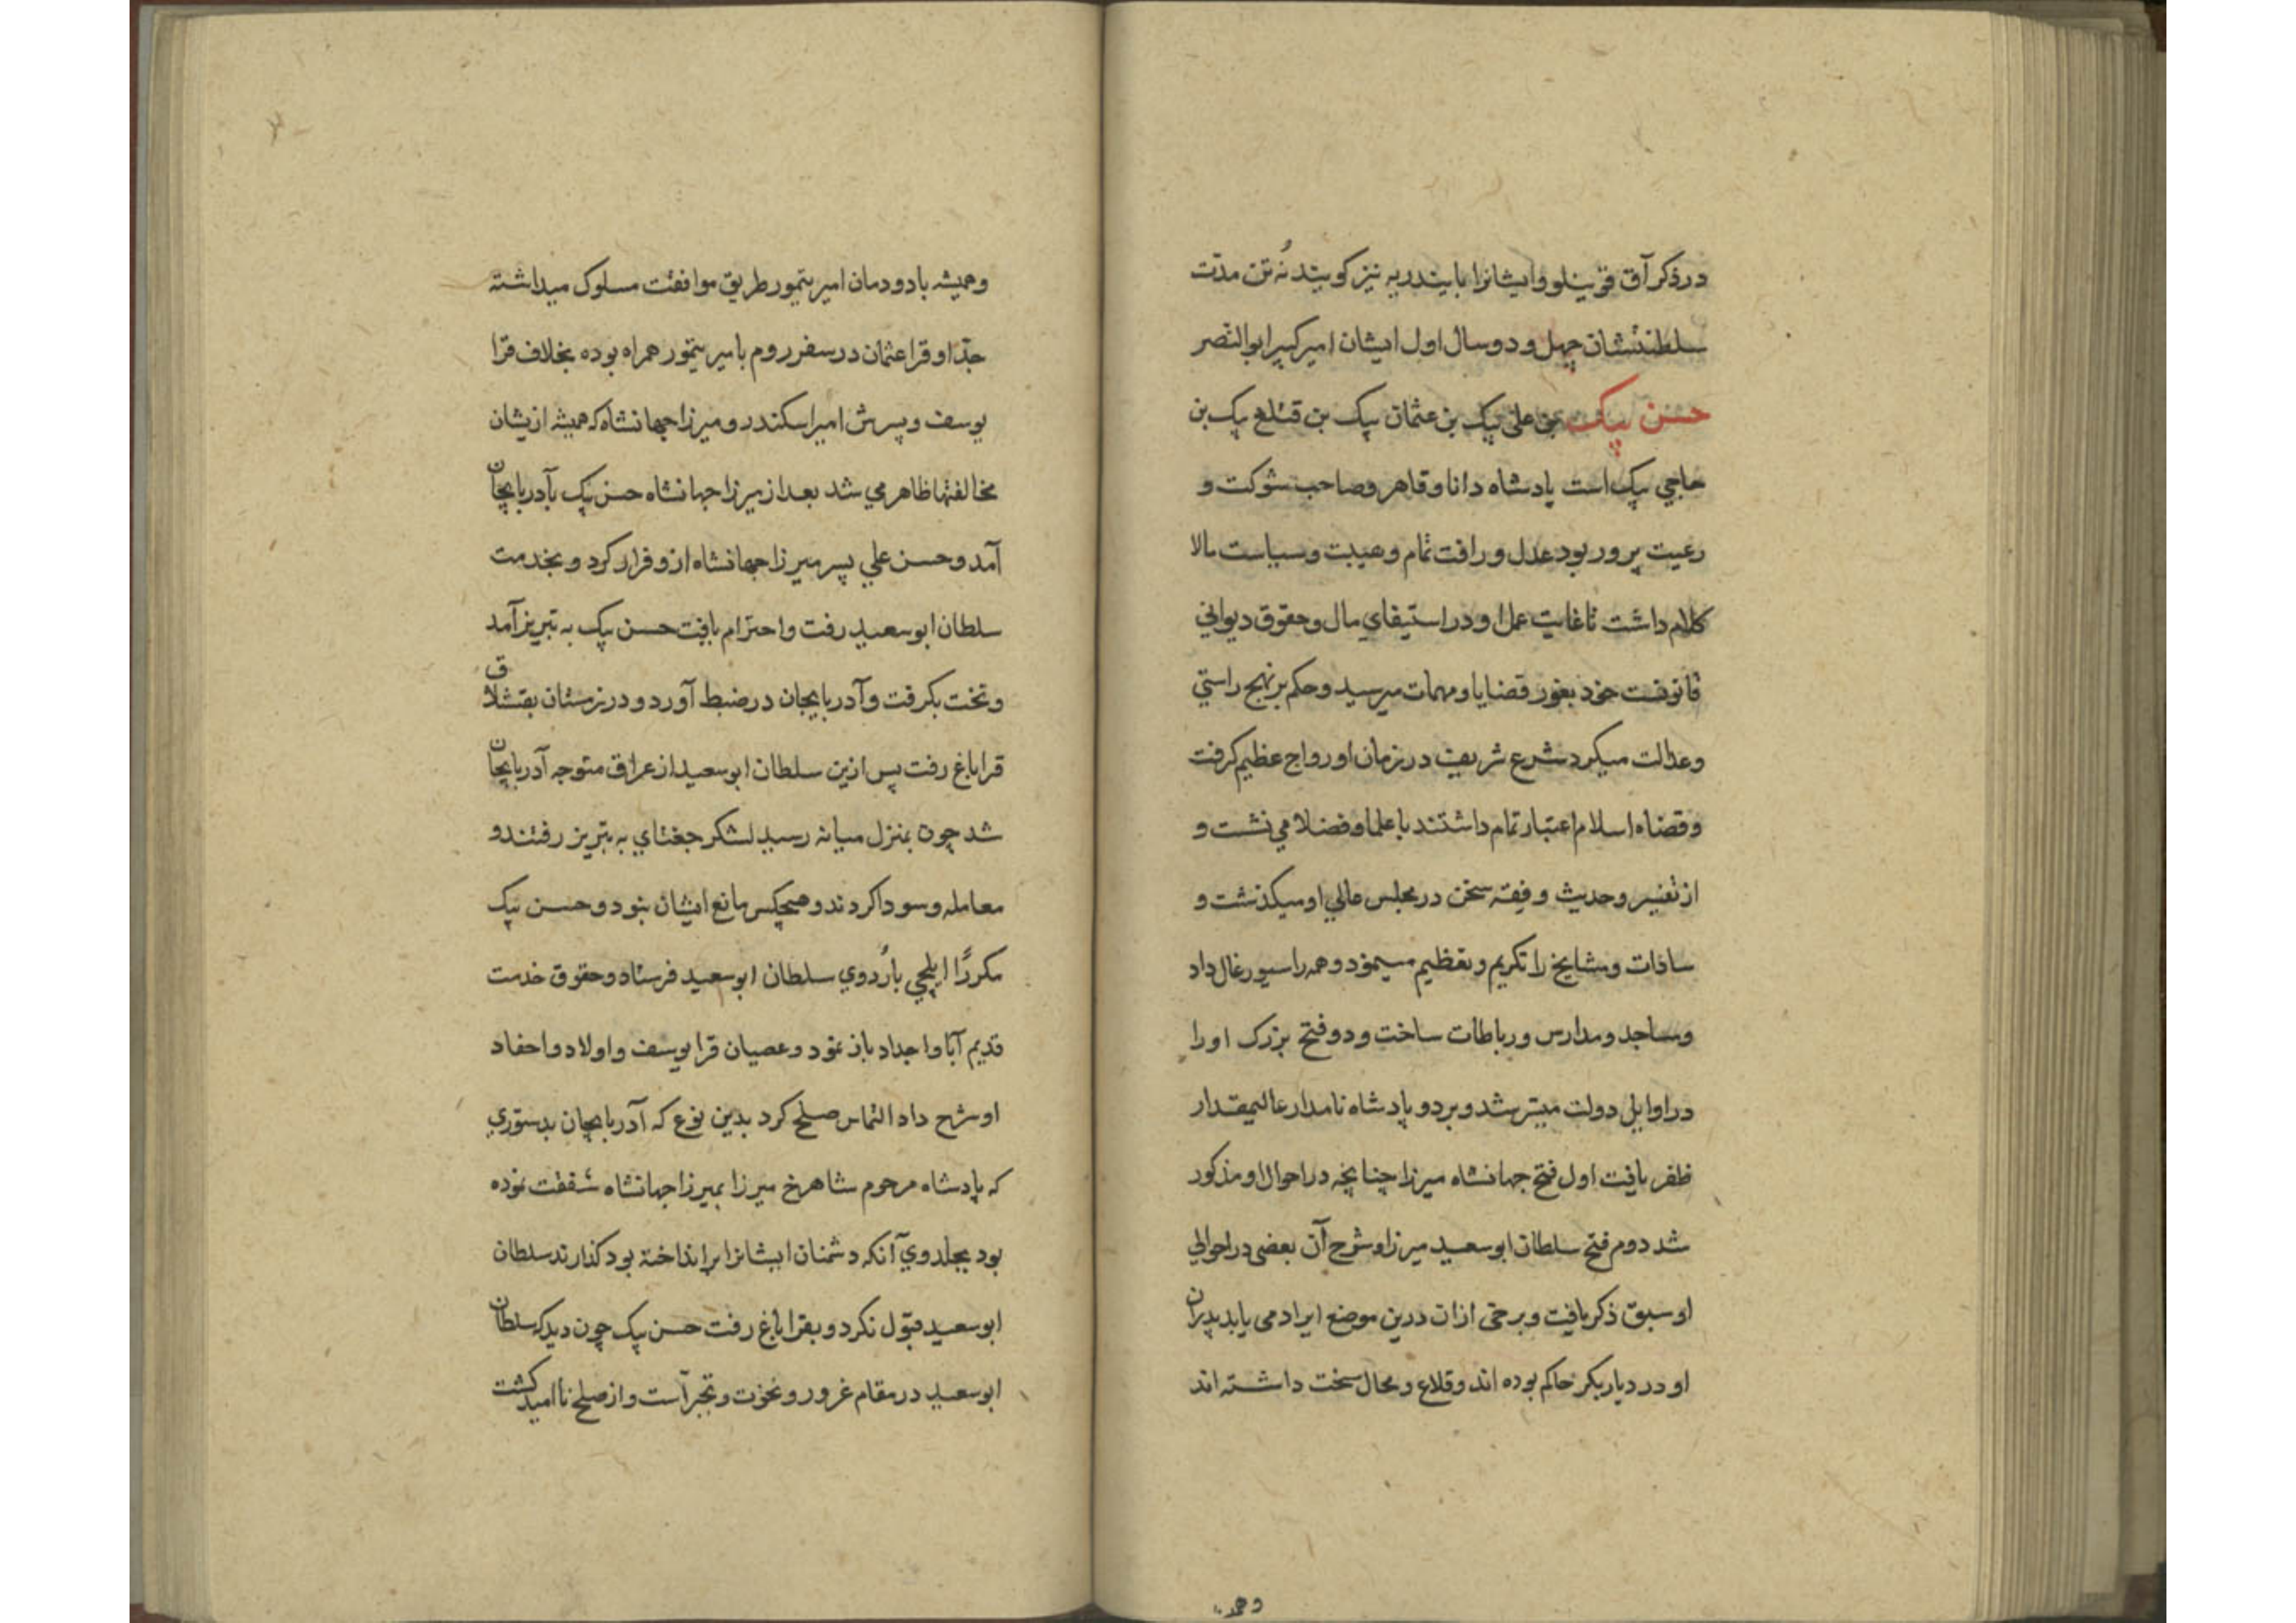 در ذکر آق قوینلو و ایشانرا بایندریه نیز کویند نُه تن مدّت
سلطنتشان چهل و دو سال اول ایشان امیر کبیر ابو النّصر
حسن بیک بن علی بیک بن عثمان بیک بن قتلغ بیک بن
حاجی بیک است پادشاه دانا و قاهر و صاحب شوکت و
رعیت پرور بود عدل و رافت تمام و هیبت و سیاست مالا
کلام داشت تا غایت عمل او در استیفای مال و حقوق دیوانی
قانونست خود بغور قضایا و مهمات میرسید و حکم بر نهج راستی
و عدالت میکرد شرع شریف در زمان او رواج عظیم کرفت
و قضاه اسلام اعتبار تمام داشتند با علما و فضلا می نشست و
از تفسیر و حدیث و فقه سخن در مجلس عالی او میکذشت و
سادات و مشایخ را تکریم و تعظیم مینمود و همه را سیورغال داد
و مساجد و مدارس و رباطات ساخت و دو فتح بزرک او را
در اوایل دولت میسّر شد و بر دو پادشاه نامدار عالیمقدار
ظفر یافت اول فتح جهانشاه میرزا چنانچه در احوال او مذکور
شد دوم فتح سلطان ابو سعید میرزا و شرح آن بعضی در احوالی
او سبق ذکر یافت و برخی ازان درین موضع ایراد می یابد پدران
او در دیار بکر حاکم بوده اند و قلاع و محال سخت داشته اند
و همیشه
و همیشه با دودمان امیر تیمور طریق موافقت مسلوک میداشته
جدّ او قرا عثمان در سفر روم با میر تیمور همراه بوده بخلاف قرا
یوسف و پسرش امیر اسکندر و میرزا جهانشاه که همیشه ازیشان
مخالفتها ظاهر می شد بعد از میرزا جهانشاه حسن بیک بآدربایجان
آمد و حسن علی پسر میرزا جهانشاه ازو فرار کرد و بخدمت
سلطان ابو سعید رفت و احترام یافت حسن بیک به تبریز آمد
و تخت بکرفت و آدربایجان در ضبط آورد و در زمستان بقشلاق
قراباغ رفت پس ازین سلطان ابو سعید از عراق متوجه آدربایجان
شد چون بمنزل میانه رسید لشکر جغتای به تبریز رفتند و
معامله و سودا کردند و هیچکس مانع ایشان نبود و حسن بیک
مکررًا ایلچی باُردوی سلطان ابو سعید فرستاد و حقوق خدمت
قدیم آبا و اجداد باز نمود و عصیان قرا یوسف و اولاد و احفاد
او شرح داد التماس صلح کرد بدین نوع که آدربایجان بدستوری
که پادشاه مرحوم شاهرخ میرزا بمیرزا جهانشاه شفقت نموده
بود بجلدوی آنکه دشمنان ایشانرا برانداخته بود کذارند سلطان
ابو سعید قبول نکرد و بقراباغ رفت حسن بیک چون دید که سلطان
ابو سعید در مقام غرور و نخوت و تجبر است و از صلح نا امید کشت